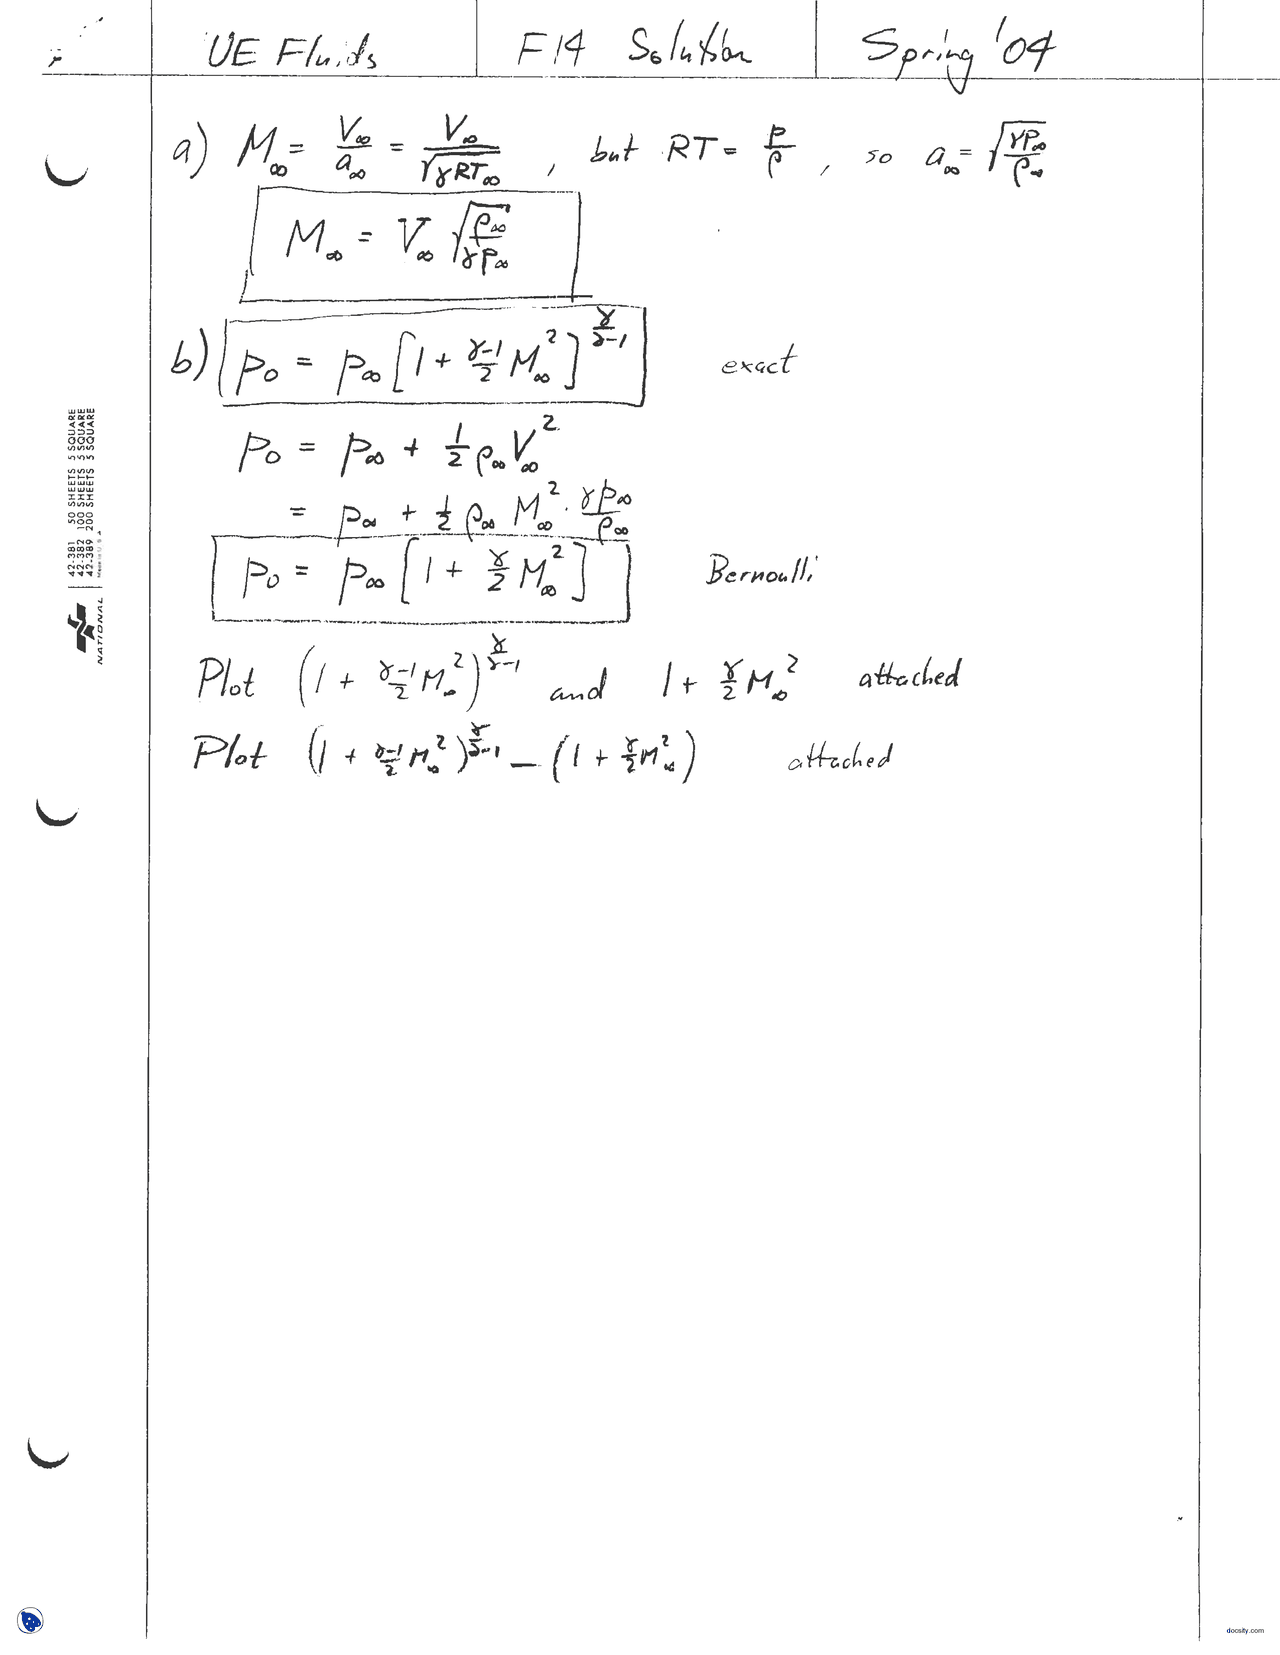 UE Fluids F14 Solution Spring '04
a) M∞ = V∞/a∞ = V∞/√(γRT∞) , but RT = p/ρ , so a∞ = √(γp∞/ρ∞)
M∞ = V∞ √(ρ∞/γp∞)
b) p₀ = p∞ [1 + (γ-1)/2 M∞²]^(γ/(γ-1)) exact
p₀ = p∞ + 1/2 ρ∞ V∞²
= p∞ + 1/2 ρ∞ M∞² · γp∞/ρ∞
p₀ = p∞ [1 + γ/2 M∞²] Bernoulli
Plot (1 + (γ-1)/2 M∞²)^(γ/(γ-1)) and 1 + γ/2 M∞² attached
Plot (1 + (γ-1)/2 M∞²)^(γ/(γ-1)) – (1 + γ/2 M∞²) attached
42-381 50 SHEETS 5 SQUARE
42-382 100 SHEETS 5 SQUARE
42-389 200 SHEETS 5 SQUARE
Made in U.S.A.
NATIONAL
docsity.com